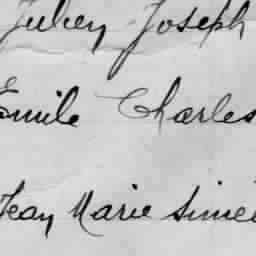 Joseph
Emile Charles
Jean Marie Simé